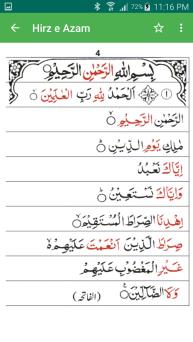 72% 11:16 PM
Hirz e Azam
4
بِسْمِ اللهِ الرَّحْمٰنِ الرَّحِيْمِ
۱ اَلْحَمْدُ لِلهِ رَبِّ الْعٰلَمِيْنَ
الرَّحْمٰنِ الرَّحِيْمِ
مٰلِكِ يَوْمِ الدِّيْنِ
اِيَّاكَ نَعْبُدُ
وَاِيَّاكَ نَسْتَعِيْنُ
اِهْدِنَا الصِّرَاطَ الْمُسْتَقِيْمَ
صِرَاطَ الَّذِيْنَ اَنْعَمْتَ عَلَيْهِمْ
غَيْرِ الْمَغْضُوْبِ عَلَيْهِمْ
وَلَا الضَّآلِّيْنَ (الفاتحہ)